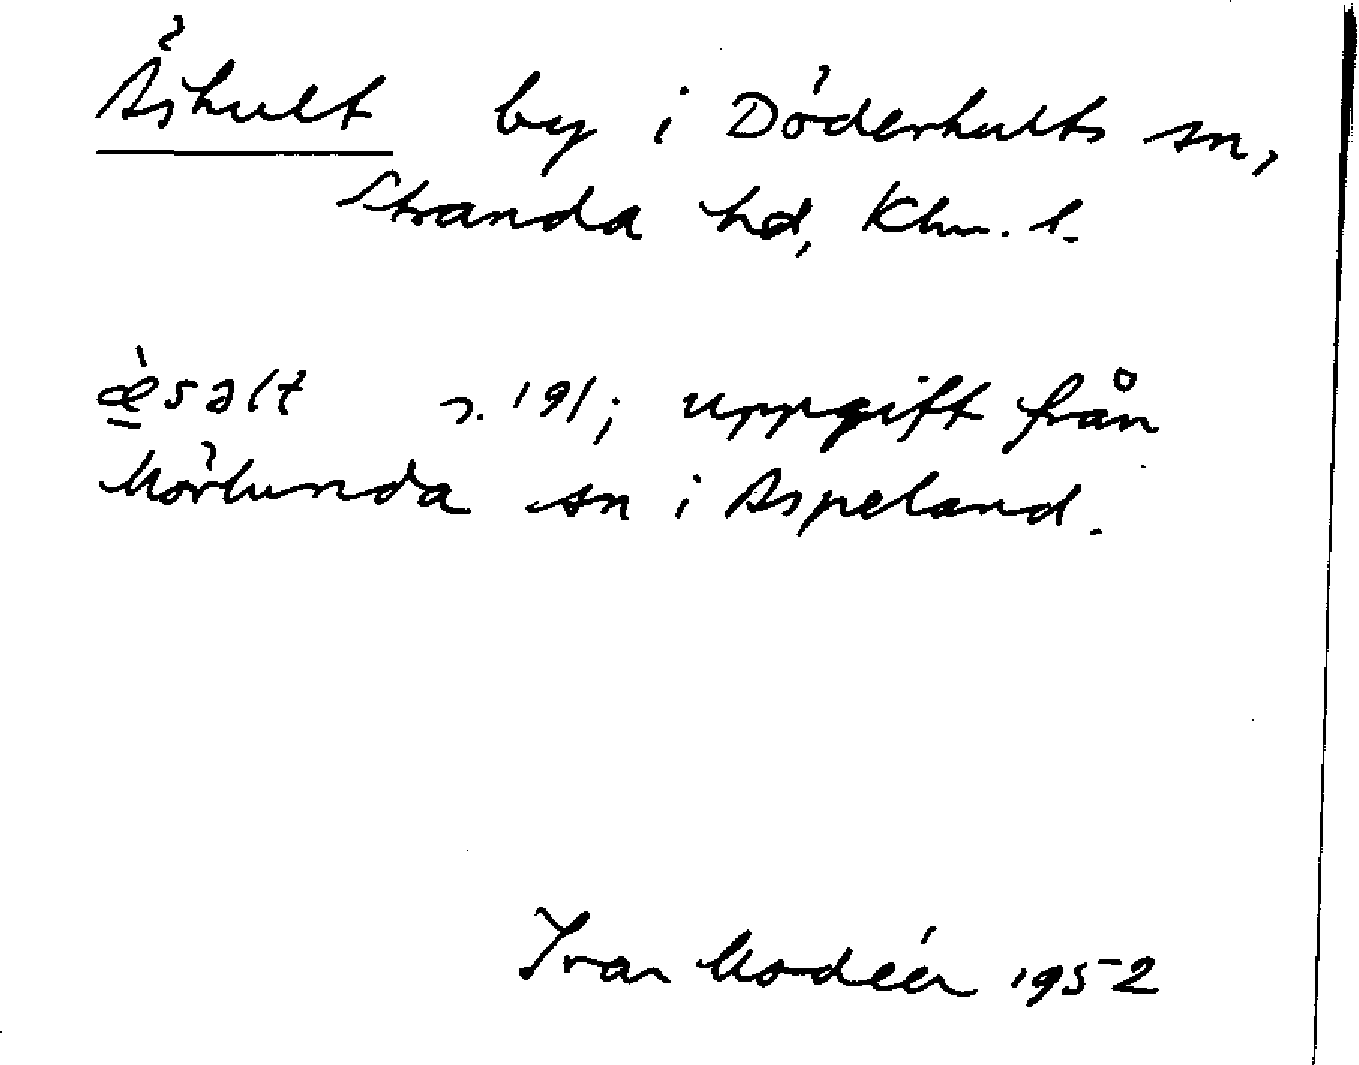 Äshult by i Döderhults sn,
Stranda hd, Klm. l.
æ̠̀səlt s. 191; uppgift från
Mörlunda sn i Aspeland.
Ivar Modéer 1952